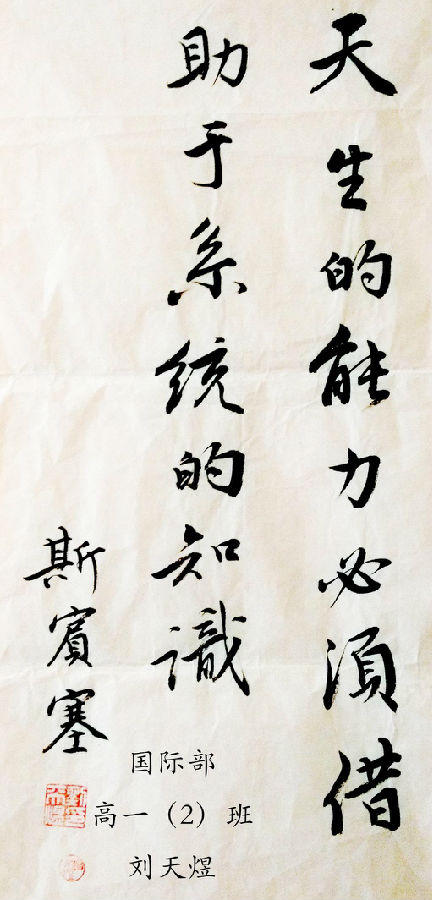 天生的能力必须借
助于系统的知識
斯賓塞
国际部
高一（2）班
刘天煜